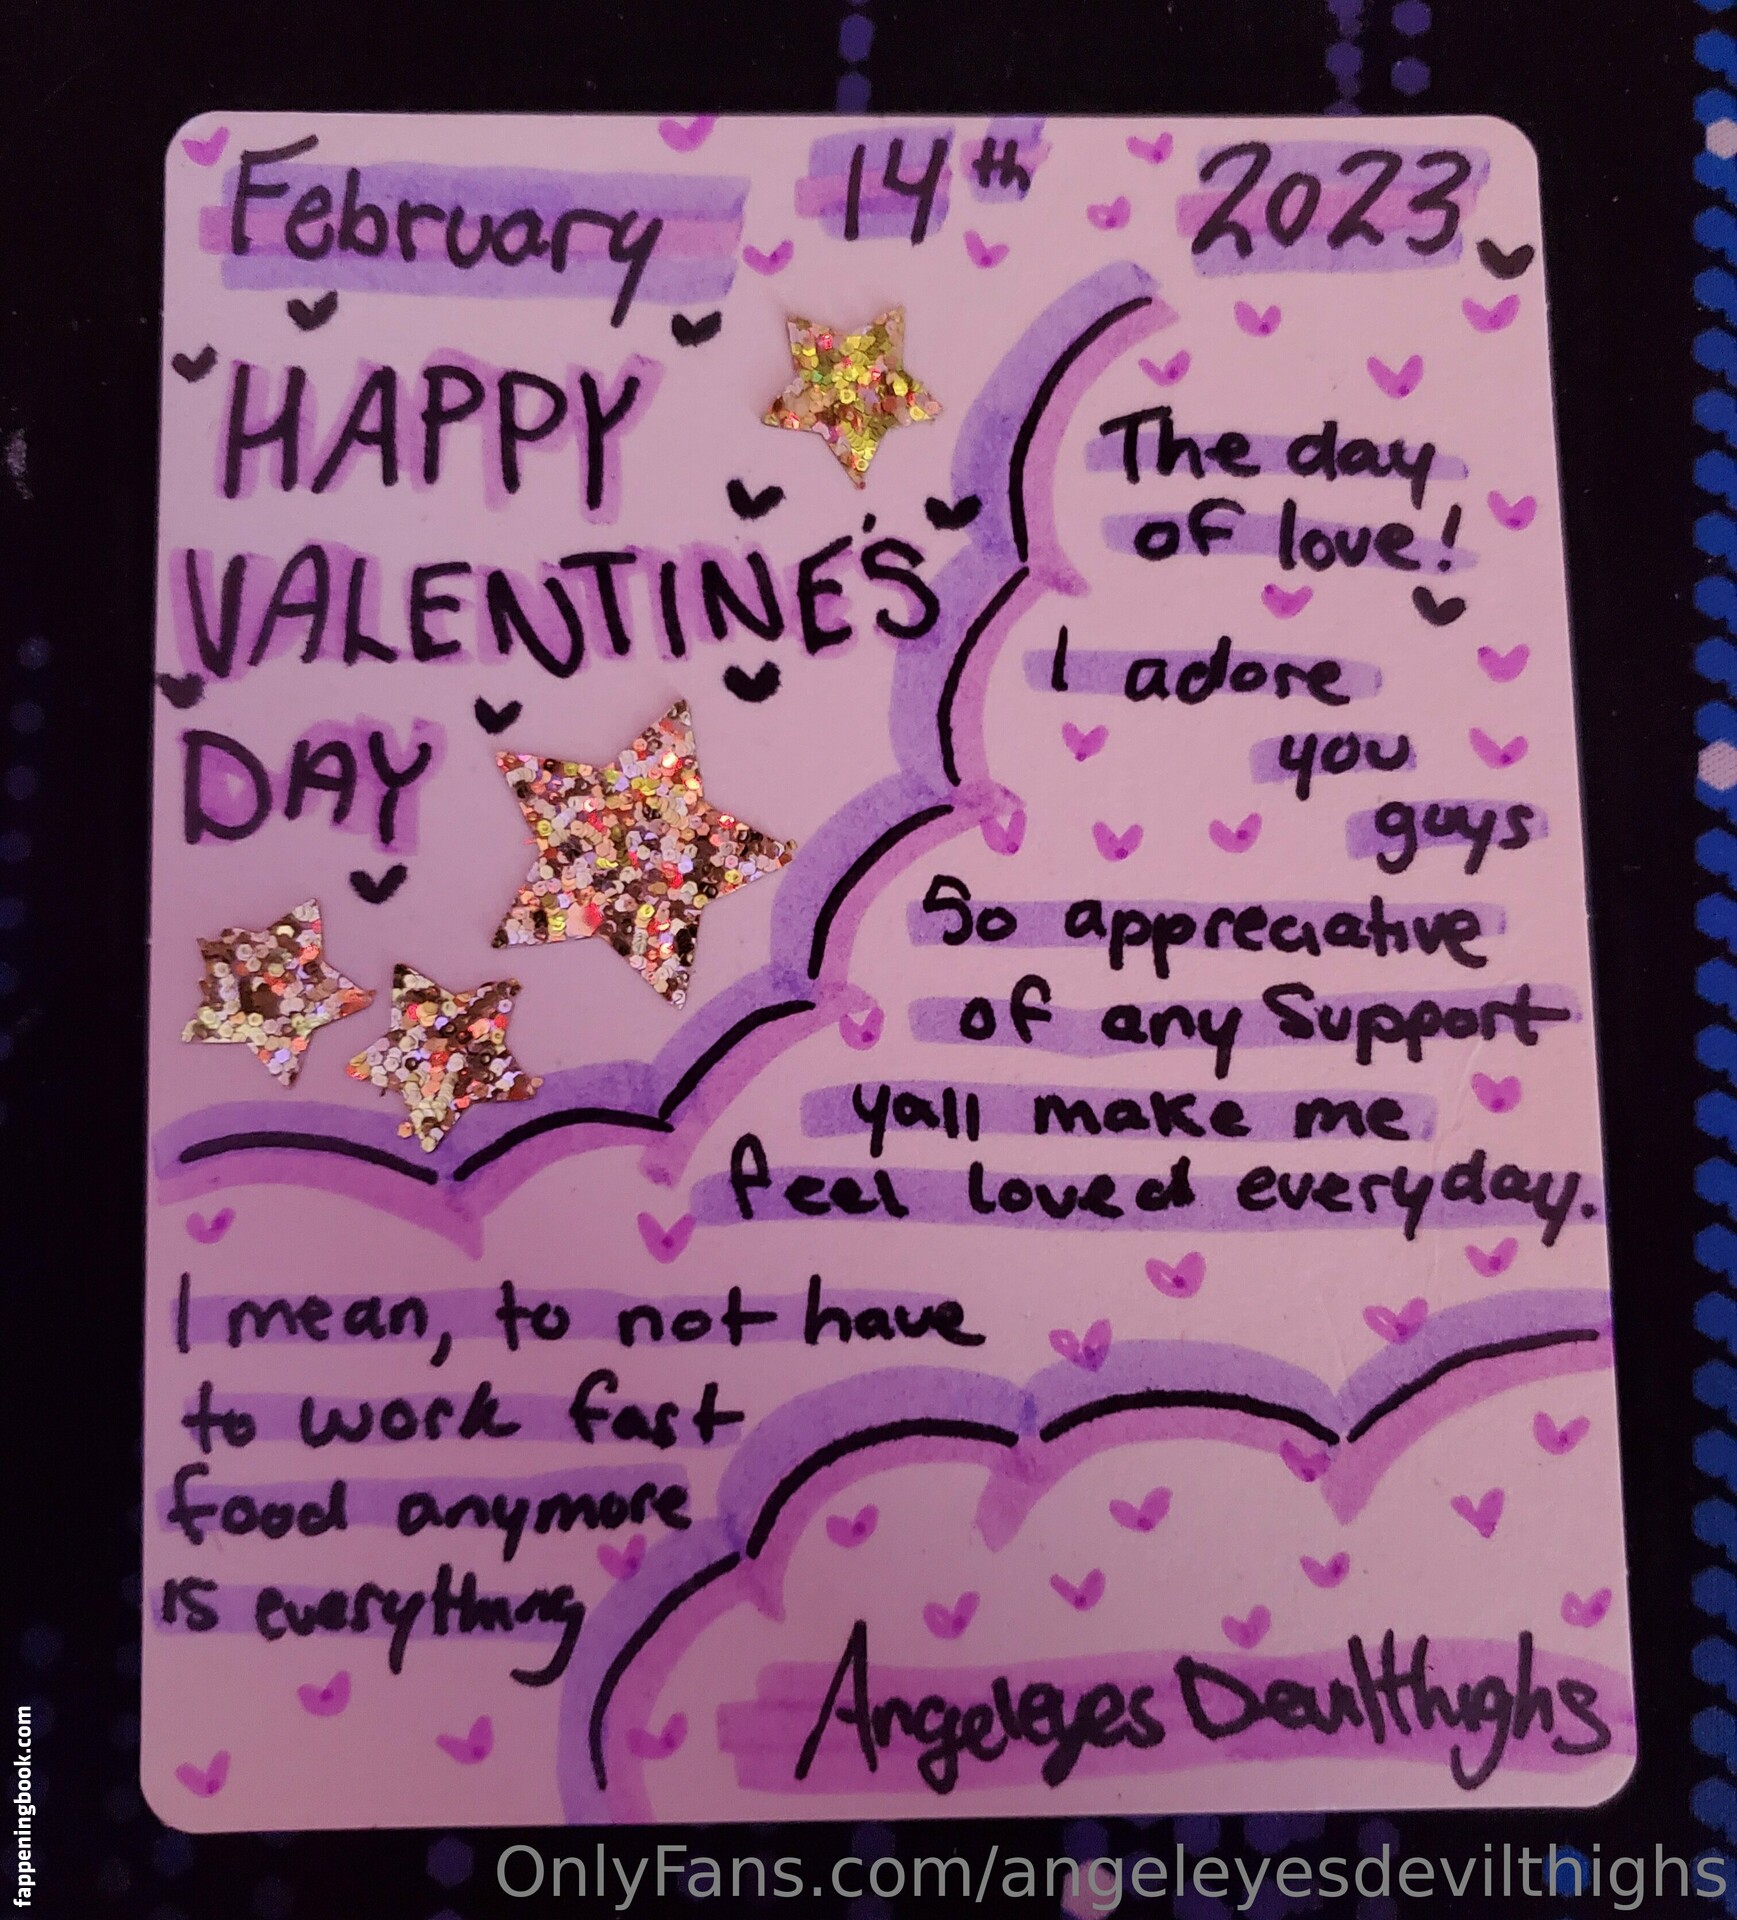 February 14th 2023
HAPPY
VALENTINE'S
DAY
The day
of love!
I adore
you
guys
So appreciative
of any Support
yall make me
feel loved everyday.
I mean, to not have
to work fast
food anymore
is everything
Angeleyes Devilthighs
OnlyFans.com/angeleyesdevilthighs
fappeningbook.com